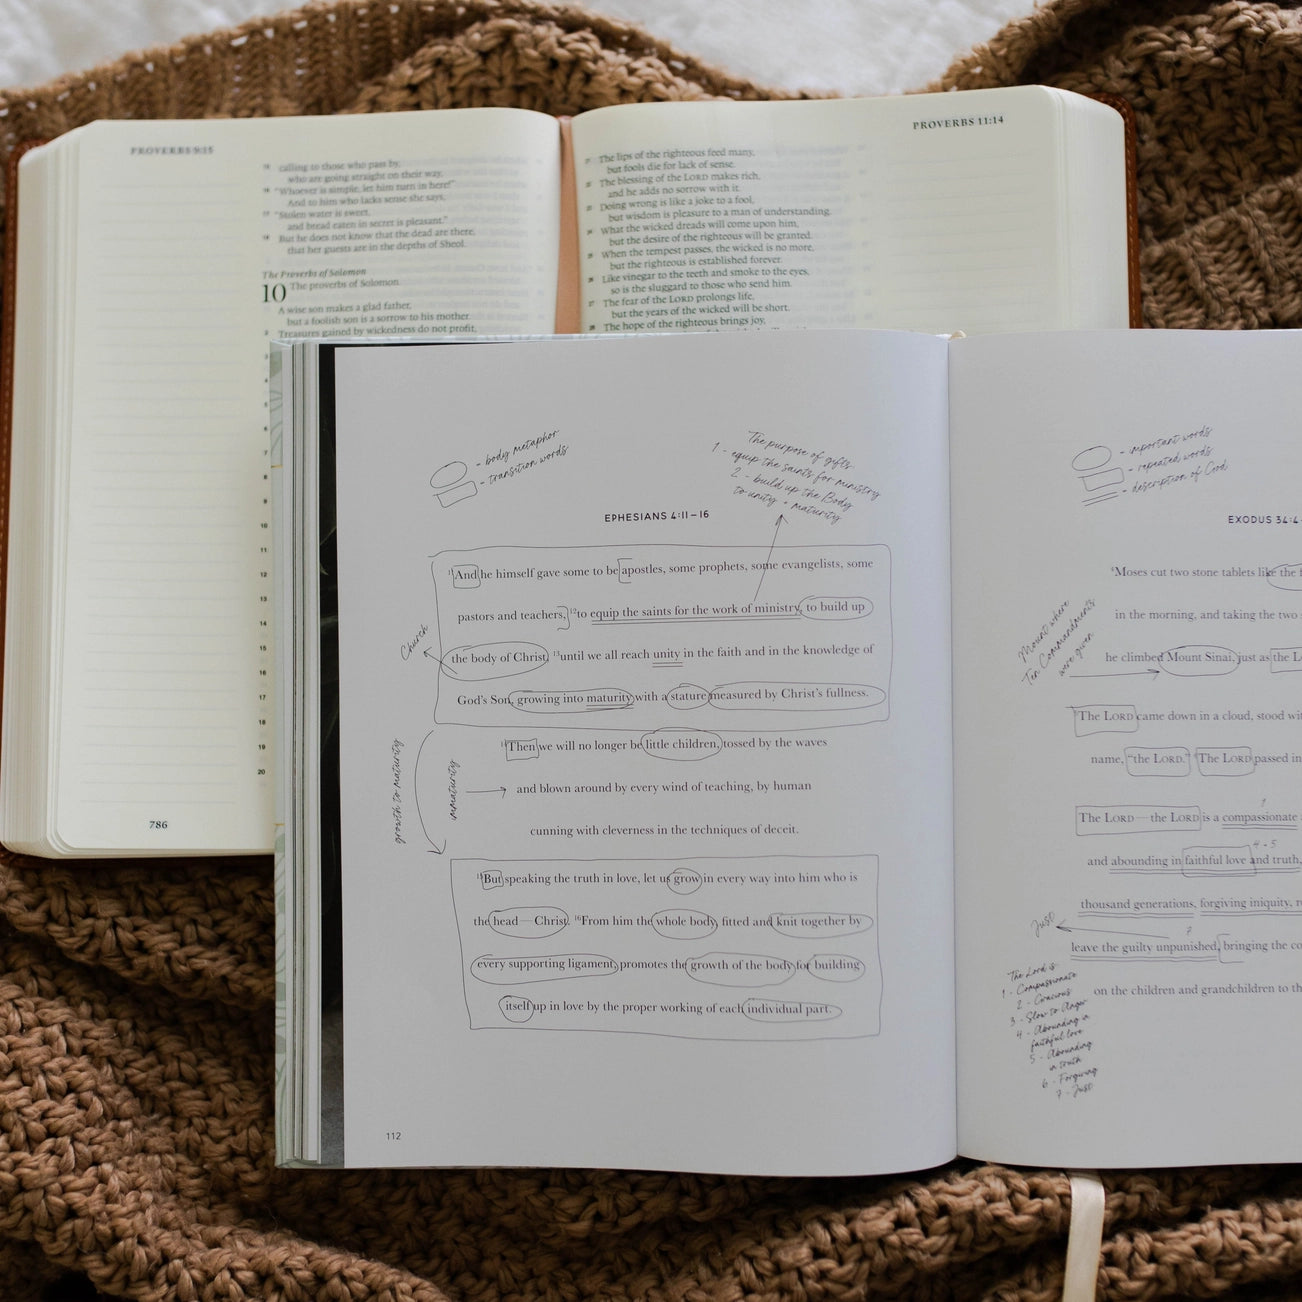 PROVERBS 9:15
calling to those who pass by,
who are going straight on their way,
16 "Whoever is simple, let him turn in here!"
And to him who lacks sense she says,
17 "Stolen water is sweet,
and bread eaten in secret is pleasant."
18 But he does not know that the dead are there,
that her guests are in the depths of Sheol.
The Proverbs of Solomon
10 The proverbs of Solomon.
A wise son makes a glad father,
but a foolish son is a sorrow to his mother.
2 Treasures gained by wickedness do not profit,
7
8
9
10
11
12
13
14
15
16
17
18
19
20
786
PROVERBS 11:14
The lips of the righteous feed many,
but fools die for lack of sense.
The blessing of the LORD makes rich,
and he adds no sorrow with it.
Doing wrong is like a joke to a fool,
but wisdom is pleasure to a man of understanding.
What the wicked dreads will come upon him,
but the desire of the righteous will be granted.
When the tempest passes, the wicked is no more,
but the righteous is established forever.
Like vinegar to the teeth and smoke to the eyes,
so is the sluggard to those who send him.
The fear of the LORD prolongs life,
but the years of the wicked will be short.
The hope of the righteous brings joy,
- body metaphor
- transition words
The purpose of gifts
1 - equip the saints for ministry
2 - build up the Body
to unity + maturity
EPHESIANS 4:11–16
11And he himself gave some to be apostles, some prophets, some evangelists, some
pastors and teachers, 12to equip the saints for the work of ministry, to build up
the body of Christ, 13until we all reach unity in the faith and in the knowledge of
God's Son, growing into maturity with a stature measured by Christ's fullness.
14Then we will no longer be little children, tossed by the waves
and blown around by every wind of teaching, by human
cunning with cleverness in the techniques of deceit.
15But speaking the truth in love, let us grow in every way into him who is
the head — Christ. 16From him the whole body, fitted and knit together by
every supporting ligament, promotes the growth of the body for building
itself up in love by the proper working of each individual part.
Church
growth to maturity
immaturity
112
- important words
- repeated words
- description of God
EXODUS 34:4
4Moses cut two stone tablets like the f
in the morning, and taking the two
he climbed Mount Sinai, just as the L
5The LORD came down in a cloud, stood wi
name, "the LORD." 6The LORD passed in
The LORD — the LORD is a compassionate
and abounding in faithful love and truth,
thousand generations, forgiving iniquity, r
leave the guilty unpunished, bringing the co
on the children and grandchildren to th
Mount where
Ten Commandments
were given
1
4 - 5
7
Just
The Lord is
1 - Compassionate
2 - Gracious
3 - Slow to Anger
4 - Abounding in
faithful love
5 - Abounding
in truth
6 - Forgiving
7 - Just